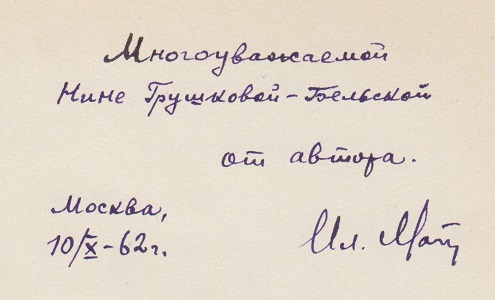 Многоуважаемой
Нине Грушковой-Бельской
от автора.
Москва,
10/X-62г.
Ил.